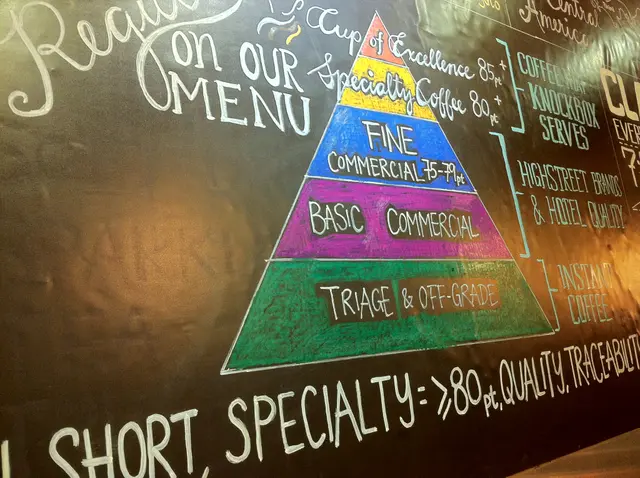 ON OUR
MENU
Cup of Excellence 85+
Specialty Coffee 80+
FINE
COMMERCIAL 75-79pt
BASIC COMMERCIAL
TRIAGE & OFF-GRADE
KNOCKBOX
SERVES
HIGHSTREET BRANDS
& HOTEL QUALITY
INSTANT
COFFEE
Central
America
SHORT, SPECIALTY = ≥80pt, QUALITY, TRACEABILIT